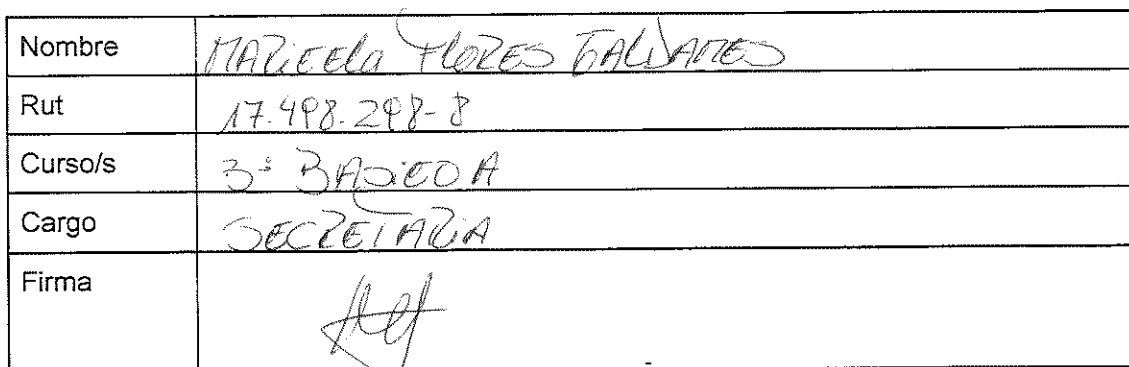 Nombre MARICELA FLORES GALDAMES
Rut 17.498.298-8
Curso/s 3° BASICO A
Cargo SECRETARIA
Firma